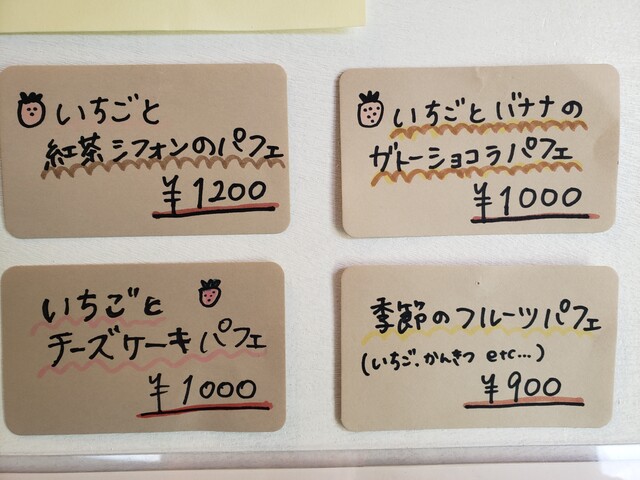 いちごと
紅茶シフォンのパフェ
¥1200
いちごとバナナの
ガトーショコラパフェ
¥1000
いちごと
チーズケーキパフェ
¥1000
季節のフルーツパフェ
(いちご、かんきつ etc...)
¥900